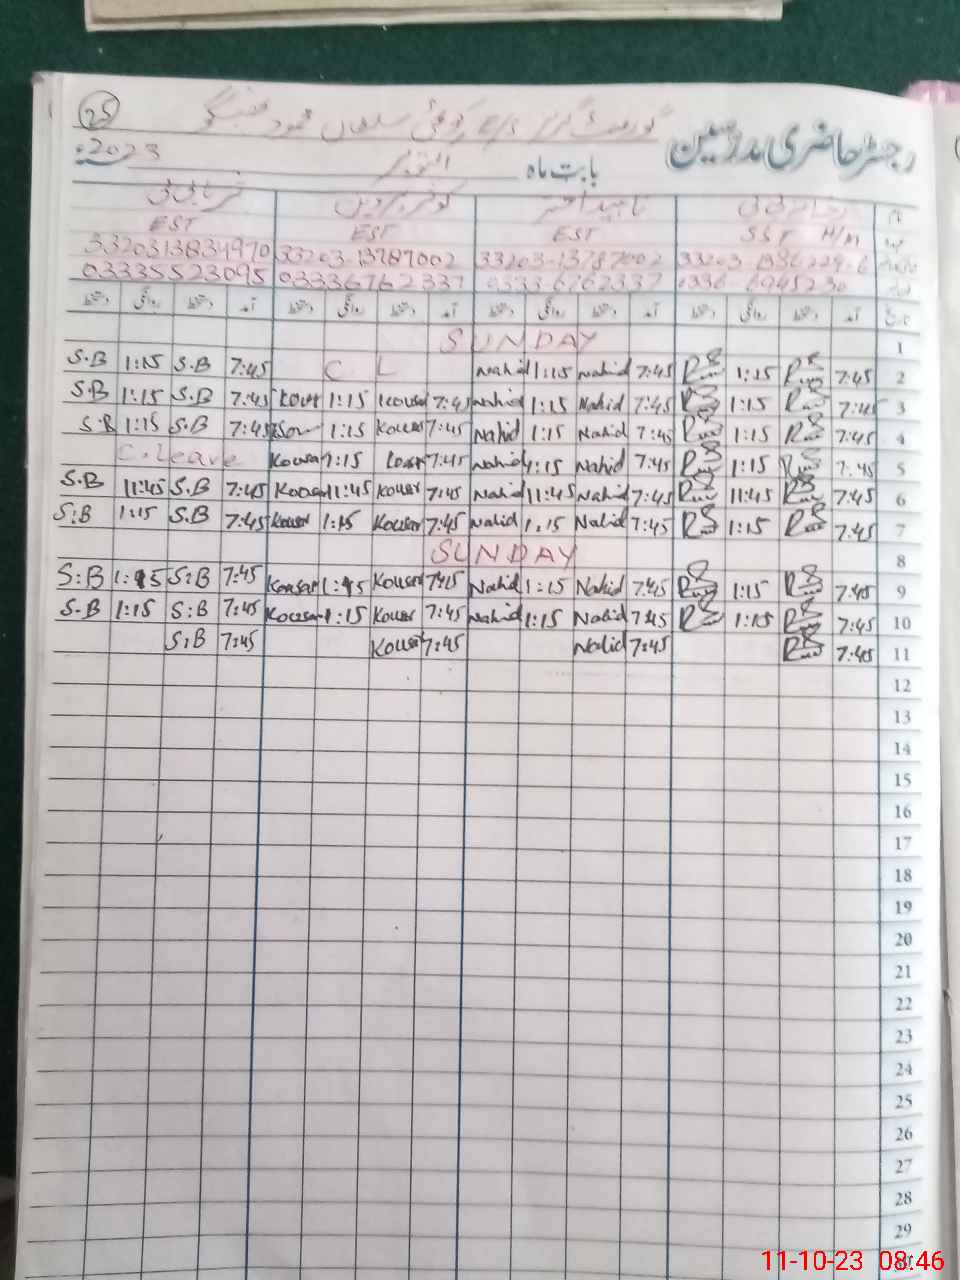 25
گورنمنٹ گرلز E/S
رجسٹر حاضری مدرسین
بابت ماہ اکتوبر 2023ء
EST EST EST SST H/M
3320313834970 33203-13787002 33203-13787002
03335523095 03336762337 0333-6762337
آمد دستخط روانگی دستخط آمد دستخط روانگی دستخط آمد دستخط روانگی دستخط آمد دستخط روانگی دستخط تاریخ
SUNDAY 1
S.B 1:15 S.B 7:45 C L Nahid 1:15 Nahid 7:45 1:15 7:45 2
S.B 1:15 S.B 7:45 Kousr 1:15 Kousar 7:45 Nahid 1:15 Nahid 7:45 1:15 7:45 3
S.B 1:15 S.B 7:45 1:15 Kousar 7:45 Nahid 1:15 Nahid 7:45 1:15 7:45 4
C.Leave Kousar 1:15 7:45 Nahid 1:15 Nahid 7:45 1:15 7:45 5
S.B 11:45 S.B 7:45 Kousar 11:45 Kousar 7:45 Nahid 11:45 Nahid 7:45 11:45 7:45 6
S:B 1:15 S.B 7:45 Kousar 1:15 Kousar 7:45 Nahid 1:15 Nahid 7:45 1:15 7:45 7
SUNDAY 8
S:B 1:15 S:B 7:45 Kousar 1:15 Kousar 7:45 Nahid 1:15 Nahid 7:45 1:15 7:45 9
S.B 1:15 S:B 7:45 Kousar 1:15 Kousar 7:45 Nahid 1:15 Nahid 7:45 1:15 7:45 10
S:B 7:45 Kousar 7:45 Nahid 7:45 7:45 11
12
13
14
15
16
17
18
19
20
21
22
23
24
25
26
27
28
29
11-10-23 08:46